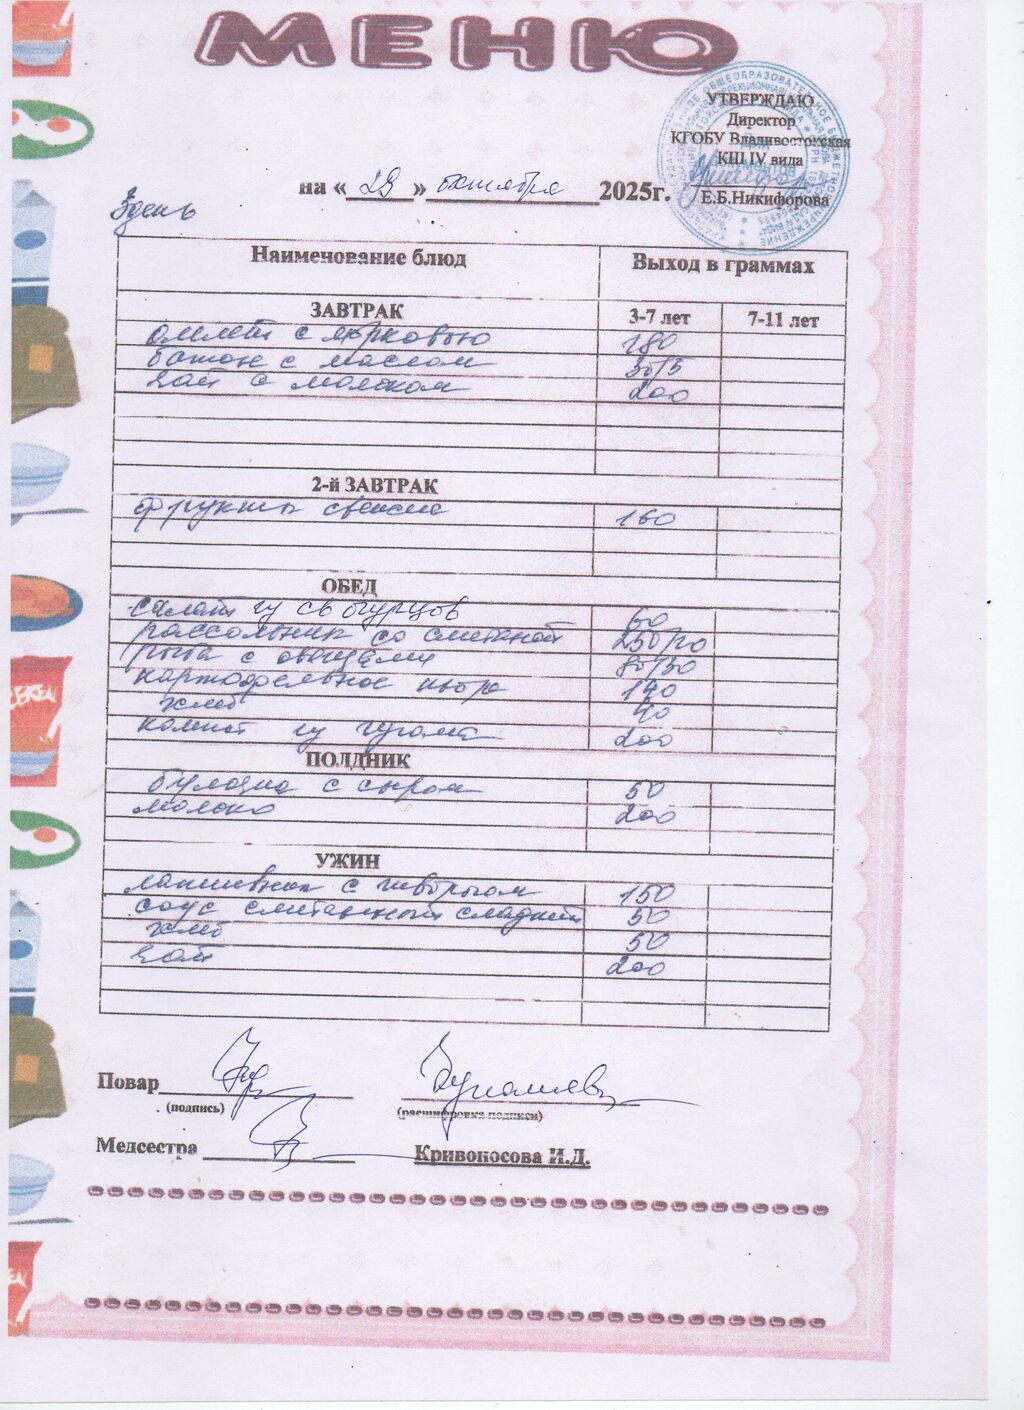 МЕНЮ
УТВЕРЖДАЮ
Директор
КГОБУ Владивостокская
КШ IV вида
Е.Б.Никифорова
на « 29 » октября 2025г.
3 день
Наименование блюд Выход в граммах
ЗАВТРАК 3-7 лет 7-11 лет
омлет с морковью 180
батон с маслом 30/5
чай с молоком 200
2-й ЗАВТРАК
фрукты свежие 160
ОБЕД
салат из св огурцов 60
рассольник со сметаной 250/10
рыба с овощами 80/30
картофельное пюре 140
хлеб 40
компот из кураги 200
ПОЛДНИК
булочка с сыром 50
молоко 200
УЖИН
лапшевник с творогом 150
соус сметанный сладкий 50
хлеб 50
чай 200
Повар
(подпись) (расшифровка подписи)
Медсестра Кривоносова И.Д.